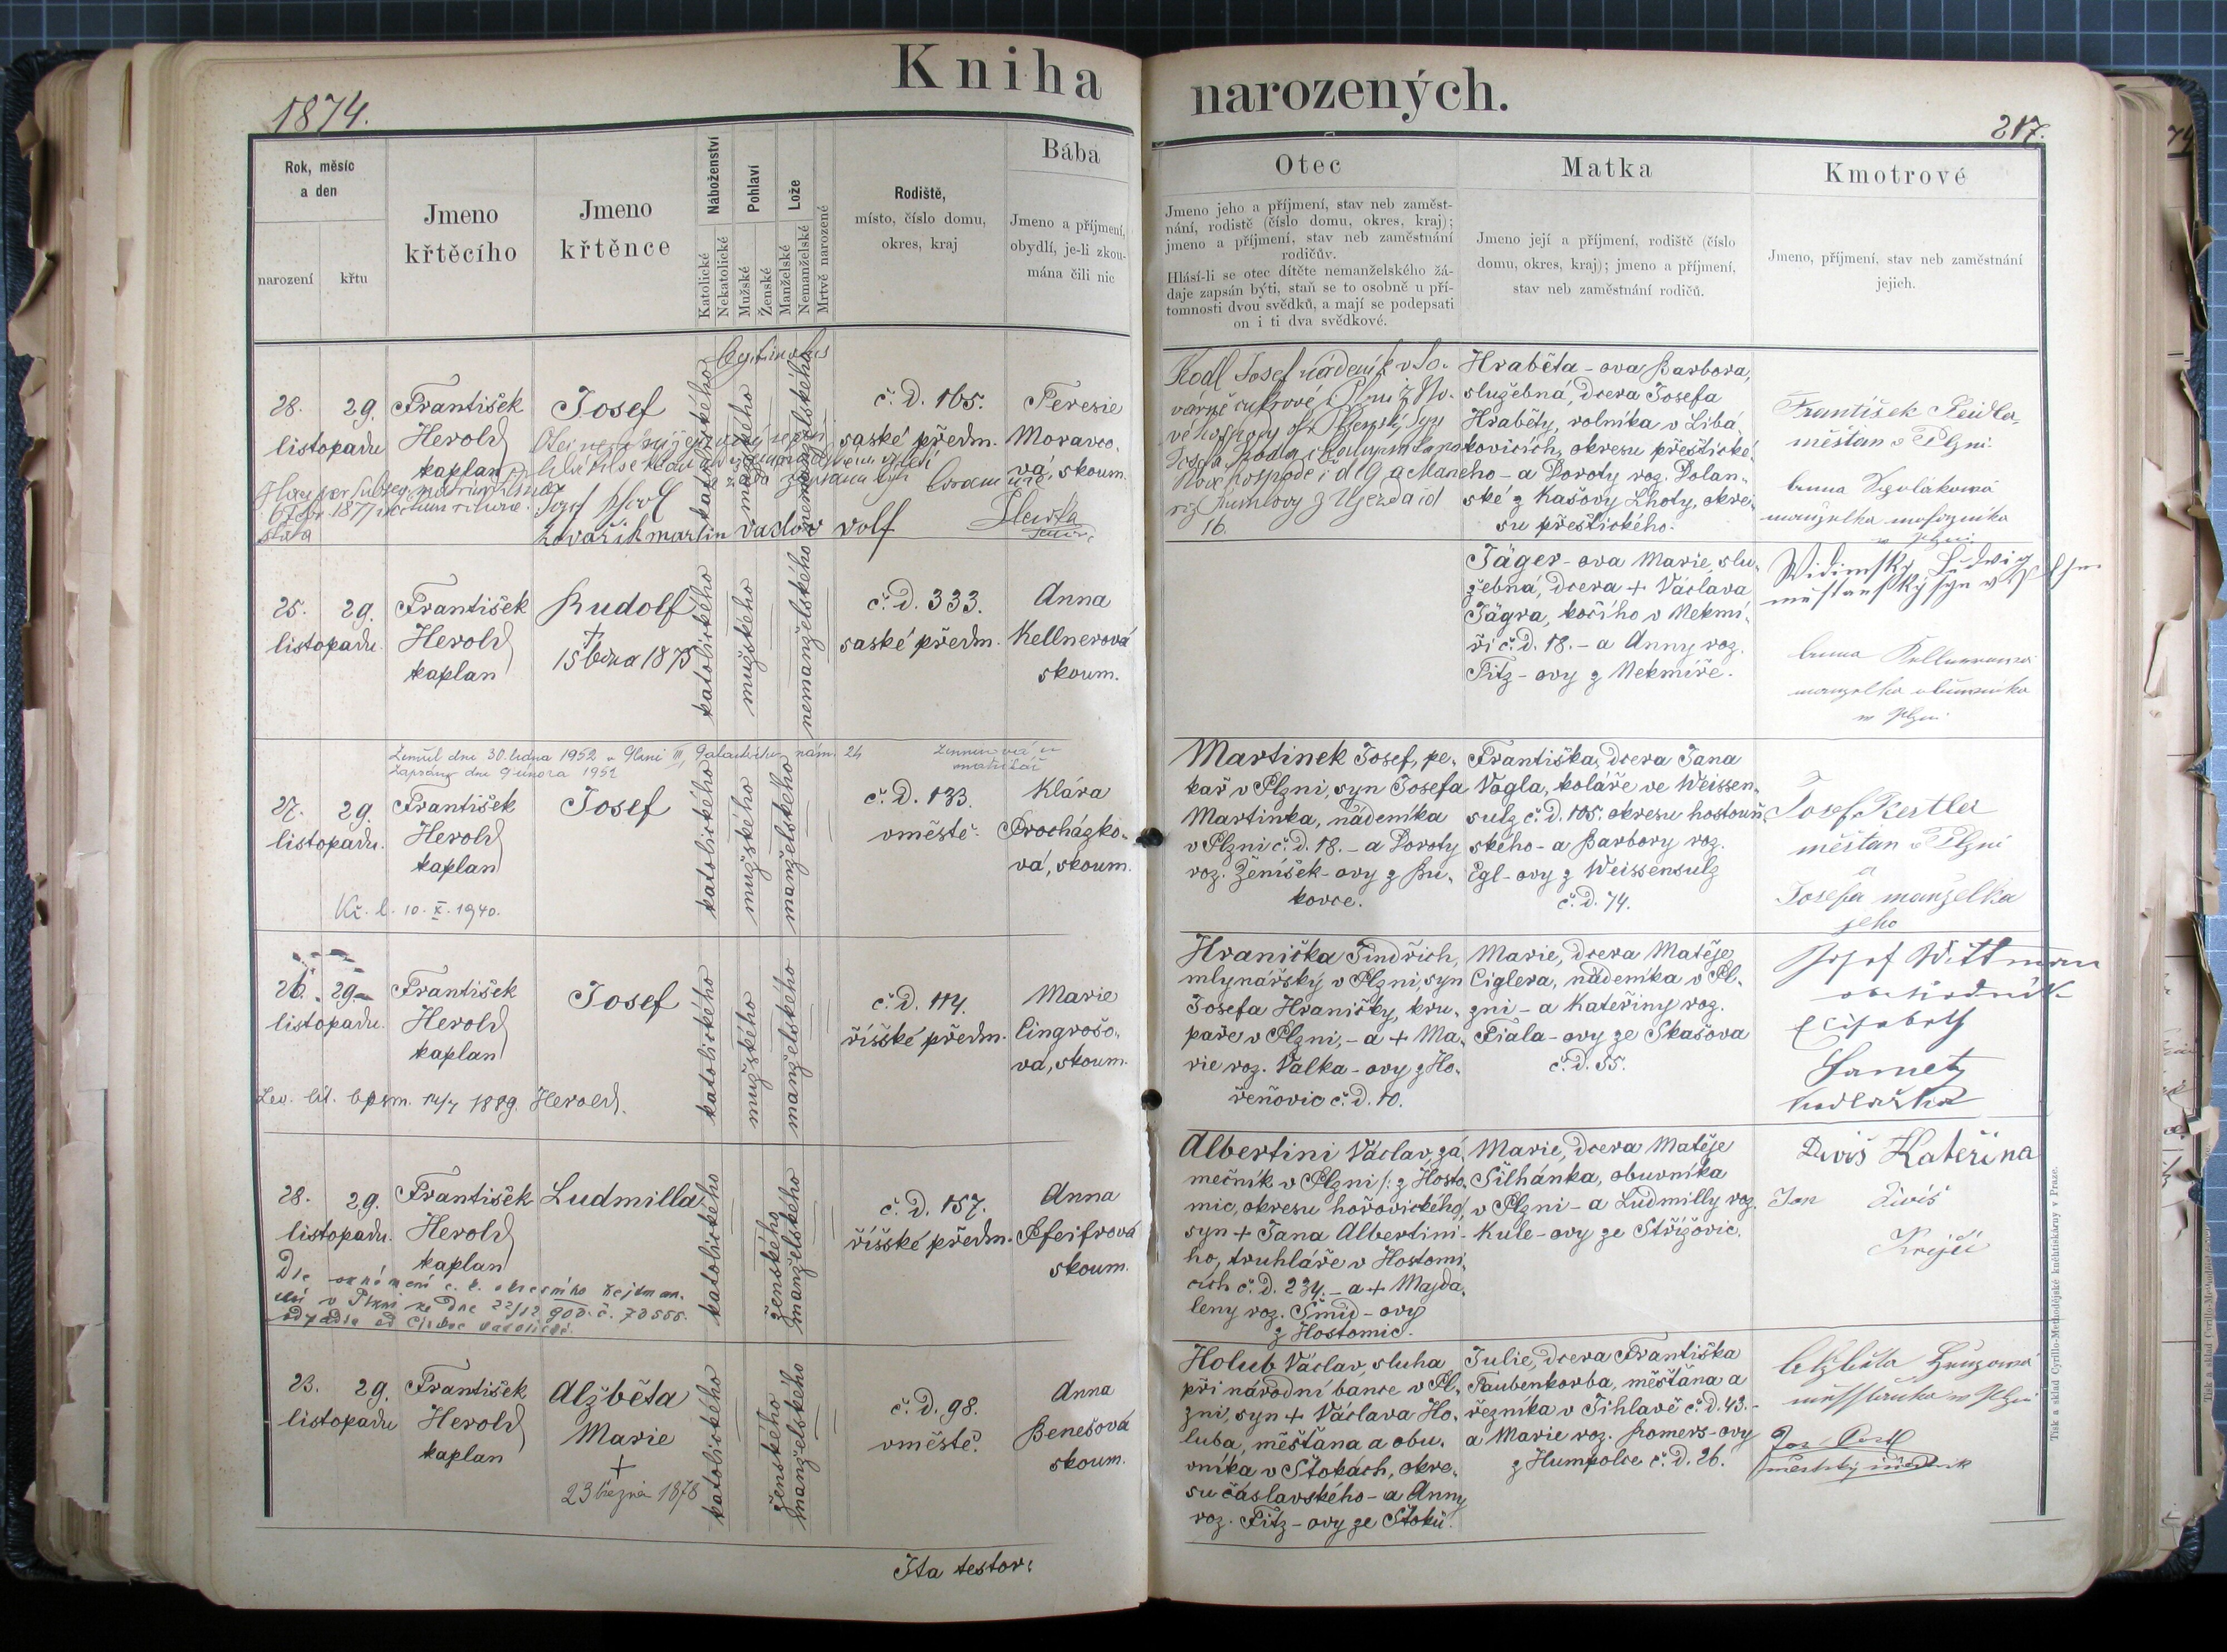 Kniha narozených.
1874.
217.
Rok, měsíc
a den
narození
křtu
Jmeno
křtěcího
Jmeno
křtěnce
Náboženství
Katolické
Nekatolické
Pohlaví
Mužské
Ženské
Lože
Manželské
Nemanželské
Mrtvě narozené
Rodiště,
místo, číslo domu,
okres, kraj
Bába
Jmeno a příjmení,
obydlí, je-li zkou-
mána čili nic
Otec
Jmeno jeho a příjmení, stav neb zaměst-
nání, rodiště (číslo domu, okres, kraj);
jmeno a příjmení, stav neb zaměstnání
rodičův.
Hlásí-li se otec dítěte nemanželského žá-
daje zapsán býti, staň se to osobně u pří-
tomnosti dvou svědků, a mají se podepsati
on i ti dva svědkové.
Matka
Jmeno její a příjmení, rodiště (číslo
domu, okres, kraj); jmeno a příjmení,
stav neb zaměstnání rodičů.
Kmotrové
Jmeno, příjmení, stav neb zaměstnání
jejich.
28. 29.
listopadu
František
Herold
kaplan
Josef
katolického
mužského
nemanželského
č. d. 165.
saské předm.
Teresie
Moravco-
vá, skoum.
Kodl Josef nádeník
16.
Hraběta-ova Barbora,
služebná, dcera Josefa
Hraběty, rolníka v Libá-
kovicích, okresu přeštické-
ho - a Doroty roz. Dolan-
ské z Kašovy Lhoty, okre-
su přeštického.
František
měštan v Plzni
manželka
Kovařík martin vaclav volf
25. 29.
listopadu.
František
Herold
kaplan
Rudolf
†
15 1875
katolického
mužského
nemanželského
č. d. 333.
saské předm.
Anna
Kellnerová
skoum.
Jäger-ova Marie, slu-
žebná, dcera + Václava
Jägra, kočího v Nekmí-
ři č. d. 18. - a Anny roz.
Fitz-ovy z Nekmíře.
Ludwig
Anna Kellnerová
w Plzni
Zemřel dne 30. ledna 1952 v Plzni III, nám. 24
Zapsáno dne 9 února 1952
27. 29.
listopadu.
František
Herold
kaplan
Kř. l. 10. X. 1940.
Josef
katolického
mužského
manželského
č. d. 133.
v městě.
Klára
Procházko-
vá, skoum.
Martinek Josef, pe-
kař v Plzni, syn Josefa
Martinka, nádeníka
v Plzni č. d. 18. - a Doroty
roz. Ženíšek-ovy z Bu-
kovce.
Františka, dcera Jana
Vogla, koláře ve Weissen-
sulz č. d. 105. okresu hostouň-
ského - a Barbory roz.
Egl-ovy z Weissensulz
č. d. 74.
Josef Kertler
měštan v Plzni
a
Josefa manželka
jeho
26. 29.
listopadu.
František
Herold
kaplan
1889. Herold.
Josef
katolického
mužského
manželského
č. d. 114.
říšské předm.
Marie
Cingrošo-
vá, skoum.
Hranička Jindřich,
mlynářský v Plzni, syn
Josefa Hraničky, kru-
paře v Plzni, - a + Ma-
rie roz. Valka-ovy z Ho-
řeňovic č. d. 10.
Marie, dcera Matěje
Ciglera, nádeníka v Pl-
zni - a Kateřiny roz.
Fiala-ovy ze Skašova
č. d. 55.
Josef Wittman
obchodník
Elisabeth
28. 29.
listopadu.
František
Herold
kaplan
Ludmilla
katolického
ženského
manželského
č. d. 157.
říšské předm.
Anna
Pfeifrová
skoum.
v Plzni ze dne 22/12 905. č. 70555.
Albertini Václav, zá-
mečník v Plzni /: z Hosto-
mic, okresu hořovického/
syn + Jana Albertini-
ho, truhláře v Hostomi-
cích č. d. 234. - a + Majda-
leny roz. Šmíd-ovy
z Hostomic.
Marie, dcera Matěje
Šilhánka, obuvníka
v Plzni - a Ludmilly roz.
Kule-ovy ze Střížovic.
Diviš Kateřina
Jan Diviš
Krejčí
23. 29.
listopadu
František
Herold
kaplan
Alžběta
Marie
+
23 března 1878
katolického
ženského
manželského
č. d. 98.
v městě.
Anna
Benešová
skoum.
Holub Václav, sluha
při národní bance v Pl-
zni, syn + Václava Ho-
luba, měšťana a obu-
vníka v Štokách, okre-
su čáslavského - a Anny
roz. Fitz-ovy ze Štoků.
Julie, dcera Františka
Taubenkorba, měšťana a
řezníka v Jihlavě č. d. 43. -
a Marie roz. Romers-ovy
z Humpolce č. d. 26.
Alžběta
w Plzni
Ita testor:
Tisk a sklad Cyrillo-Methodějské knihtiskárny v Praze.